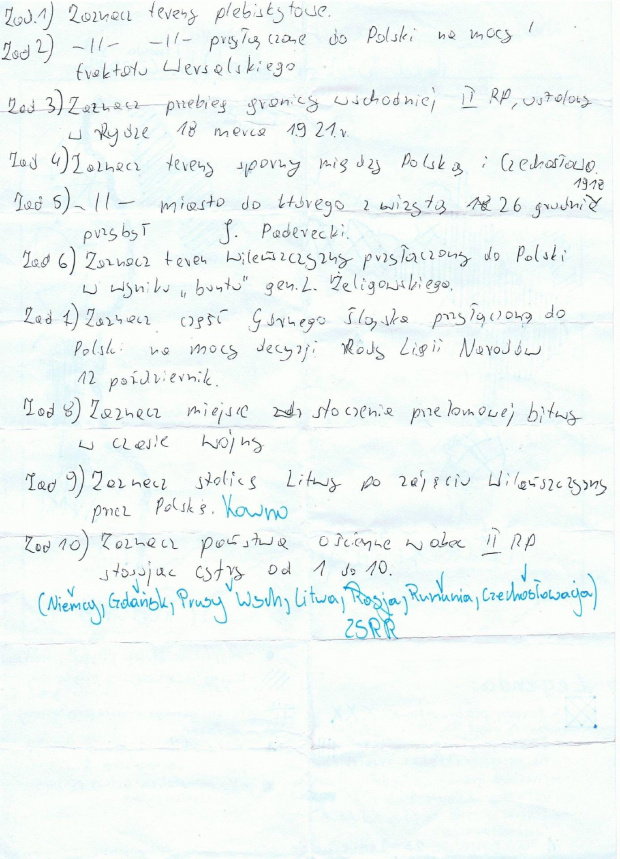 Zad. 1) Zaznacz tereny plebiscytowe.
Zad 2) -||- -||- przyłączone do Polski na mocy
traktatu Wersalskiego
Zad 3) Zaznacz przebieg granicy wschodniej II RP, ustalony
w Rydze 18 marca 1921.r.
Zad 4) Zaznacz tereny sporny między Polską i Czechosłowa.
Zad 5) -||- miasto do którego z wizytą 26 grudnia 1918
przybył J. Paderecki.
Zad 6) Zaznacz teren Wileńszczyzny przyłączony do Polski
w wyniku „buntu" gen. L. Żeligowskiego.
Zad 7) Zaznacz część Górnego Śląska przyłączoną do
Polski na mocy decyzji Rady Ligii Narodów
12 październik.
Zad 8) Zaznacz miejsce stoczenia przełomowej bitwy
w czasie wojny
Zad 9) Zaznacz stolicę Litwy po zajęciu Wileńszczyzny
przez Polskę. Kowno
Zad 10) Zaznacz państwa ościenne wobec II RP
stosując cyfry od 1 do 10.
(Niemcy, Gdańsk, Prusy Wsch, Litwa, Rosja, Rumunia, Czechosłowacja)
ZSRR